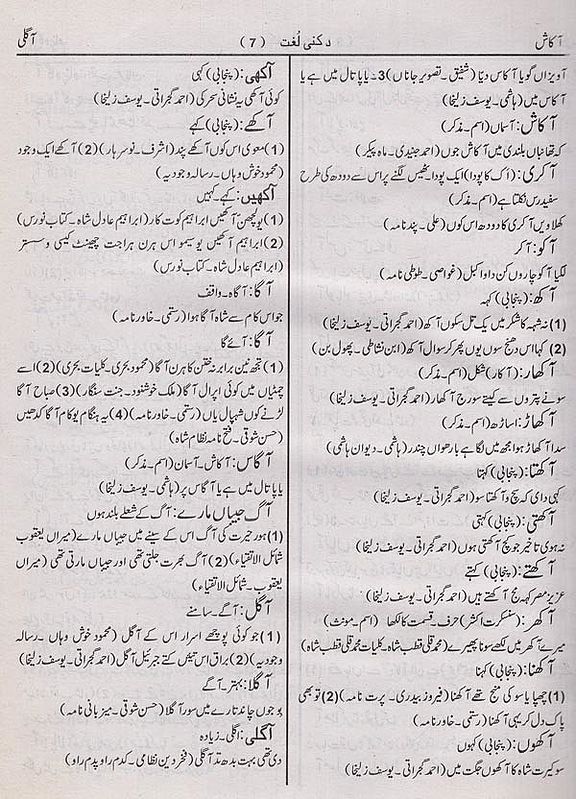 آکاش
دکنی لُغت (7)
آگلی
آویزاں گویا آکاس دیّا (شفیق۔تصویر جاناں)3۔یا پاتال میں ہے یا
آکاس میں (ہاشمی۔یوسف زلیخا)
آکاش: آسماں (اسم۔مذکر)
کہ تھانباں بلندی میں آکاش جوں (احمد جنیدی۔ماہ پیکر)
آکری: (اَک کا پودا) ایک پودا۔ٹھیس لگنے پر اس سے دودھ کی طرح
سفید رس نکلتا ہے (اسم۔مذکر)
کھلاویں آکری کا دودھ اس کوں (علی۔پند نامہ)
آکو: آکر
لگیا آکو چاروں کن داوا کپل (غواصی۔طوطی نامہ)
آکھ: (پنجابی) کہہ
(1) نہ شہہ کا شکر میک تل سکوں آکھ (احمد گجراتی۔یوسف زلیخا)
(2) کہا اس دھنج سوں یوں پھر کر سوال آکھ (ابن نشاطی۔پھول بن)
آکھار: (آکار) شکل (اسم۔مذکر)
سونے پتروں سے کیتے سورج آکھار (احمد گجراتی۔یوسف زلیخا)
آکھاڑ: اساڑھ (اسم۔مذکر)
سدا آکھاڑ ہوا مجھ میں لگا ہے بارھواں چندر (ہاشمی۔دیوان ہاشمی)
آکھتا: (پنجابی) کہتا
کہی دائی کہ کچ وہ آکھتا سو (احمد گجراتی۔یوسف زلیخا)
آکھتی: (پنجابی) کہتی
نہ ہوی تاخیر جو کچ آکھتی ہوں (احمد گجراتی۔یوسف زلیخا)
آکھتے: (پنجابی) کہتے
عزیز مصر کہہ کچ آکھتے ہیں (احمد گجراتی۔یوسف زلیخا)
آکھر: (سنسکرت اکشر) حرف۔قسمت کا لکھا (اسم۔مونث)
میرے آکھر میں لکھے سونا پھیرے (محمد قلی قطب شاہ۔کلیات محمد قلی قطب شاہ)
آکھنا: (پنجابی) کہنا
(1) چھپایا سو کی منج تھے آکھنا (فیروز بیدری۔پرت نامہ)(2) تو بھی
پاک دل کر یہی آکھنا (رستمی۔خاور نامہ)
آکھوں: (پنجابی) کہوں
سو کیرت شاہ کا آکھوں جگت میں (احمد گجراتی۔یوسف زلیخا)
آکھی: (پنجابی) کہی
کوئی آکھی یہ نشانی سحر کی (احمد گجراتی۔یوسف زلیخا)
آکھے: (پنجابی) کہے
(1) معوی اس کوں آکھے پند (اشرف۔نوسرہار)(2) آکھے ایک وجود
(محمود خوش دہاں۔رسالہ وجودیہ)
آکھیں: کہے۔کہیں
(1) پوچھن آکھیں ابراہیم کوت کار (ابراہیم عادل شاہ۔کتاب نورس)
(2) ابراہیم آکھیں یوسیمو اس ہرن ہراجت چھینٹ کیسی وستر
(ابراہیم عادل شاہ۔کتاب نورس)
آگا: آگاہ۔واقف
جو اس کام سے شاہ آگا ہوا (رستمی۔خاور نامہ)
آگا: آئے گا
(1) تجھ نین برابر نہ ختن کا ہرن آگا (محمود بحری۔کلیات بحری)(2) اسے
چمٹیاں میں کوئی اپرال آگا (ملک خوشنود۔جنت سنگار)(3) صبا آگا
لڑنے کوں شہپال یاں (رستمی۔خاور نامہ)(4) یہ ہنگام یو کام آگا کدھیں
(حسن شوقی۔فتح نامہ نظام شاہ)
آگاس: آکاش۔آسمان (اسم۔مذکر)
یا پاتال میں ہے یا آگاس پر (ہاشمی۔یوسف زلیخا)
آگ جیباں مارے: آگ کے شعلے بلند ہوں
(1) ہور حیرت کی آگ اس کے سینے میں جیباں مارے (میراں یعقوب
شمائل الاتقیاء)(2) آگ بھرت جلتی تھی اور جیباں مارتی تھی (میراں
یعقوب۔شمائل الاتقیاء)
آگل: آگے۔سامنے
(1) جو کوئی پوچھے اسرار اس کے آگل (محمود خوش دہاں۔رسالہ
وجودیہ)(2) براق اس تئیں کتے جبرئیل آگل (احمد گجراتی۔یوسف زلیخا)
آگلا: بہتر۔آگے
یو جوں چاند تارے میں سور آگلا (حسن شوقی۔میزبانی نامہ)
آگلی: اگلی۔زیادہ
دی تھی بہت بدھ تد آگلی (فخر دین نظامی۔کدم راو پدم راو)